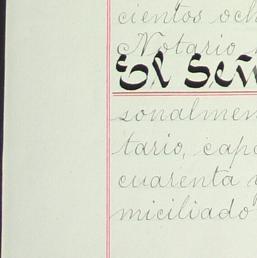 cientos och
Notario
El Señ
sonalmen
tario, capa
cuarenta
miciliado